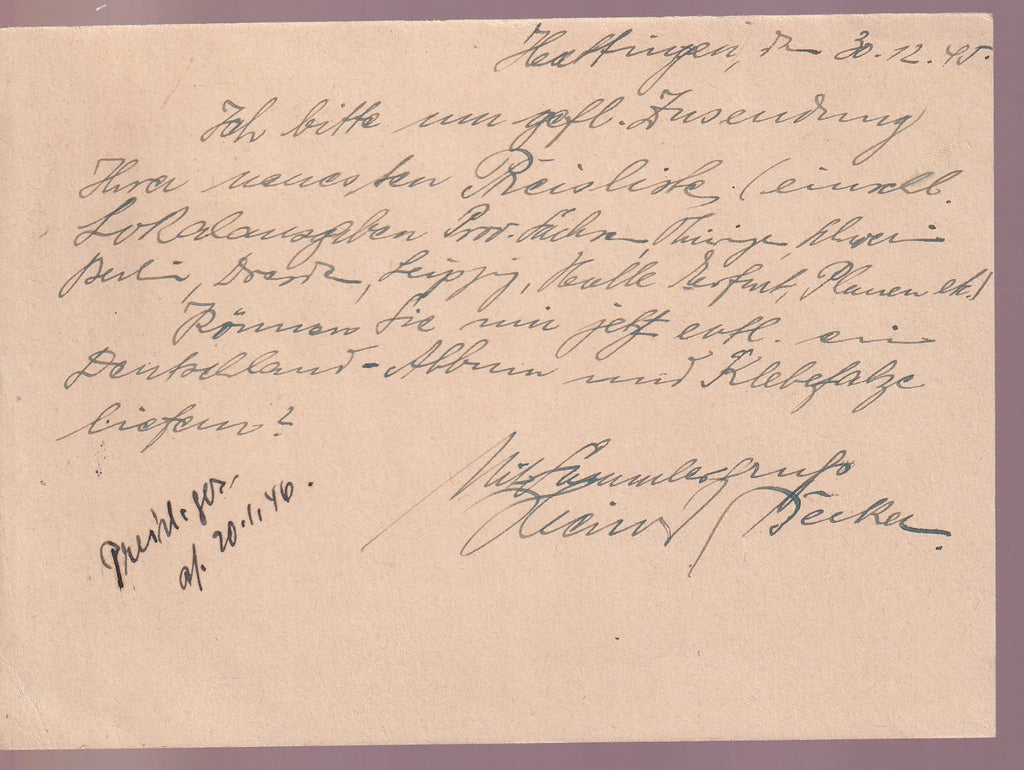 Hattingen, den 30.12.45.
Ich bitte um gefl. Zusendung
Ihrer neuesten Preisliste (einschl.
Lokalausgaben Prov. Sachsen, Thüringen, Schwerin
Berlin, Dresden, Leipzig, Halle Erfurt, Plauen etc.)
Können Sie mir jetzt evtl. ein
Deutschland-Album und Klebefalze
liefern?
Mit Sammlergruß
Heinrich Becker.
ab. 20.1.46.